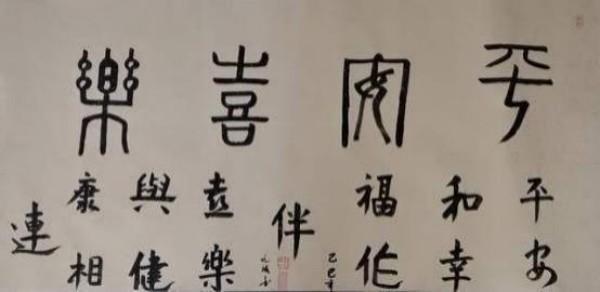 平安喜樂
平安
和幸
福作
伴
喜樂
與健
康相
連
乙巳年